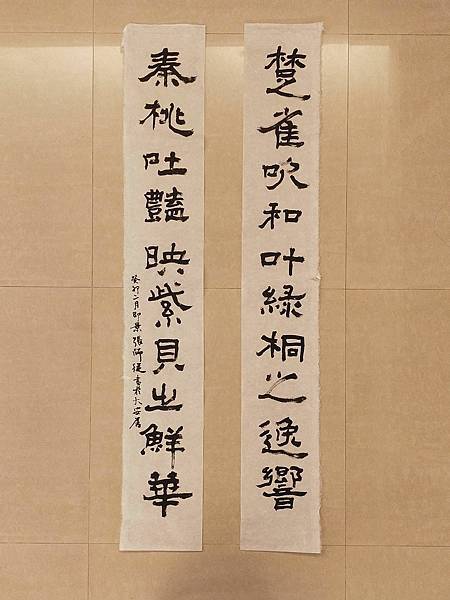 楚雀吹和叶綠桐之逸響
秦桃吐豔映紫貝之鮮華
癸卯二月即景張師從書於大安居